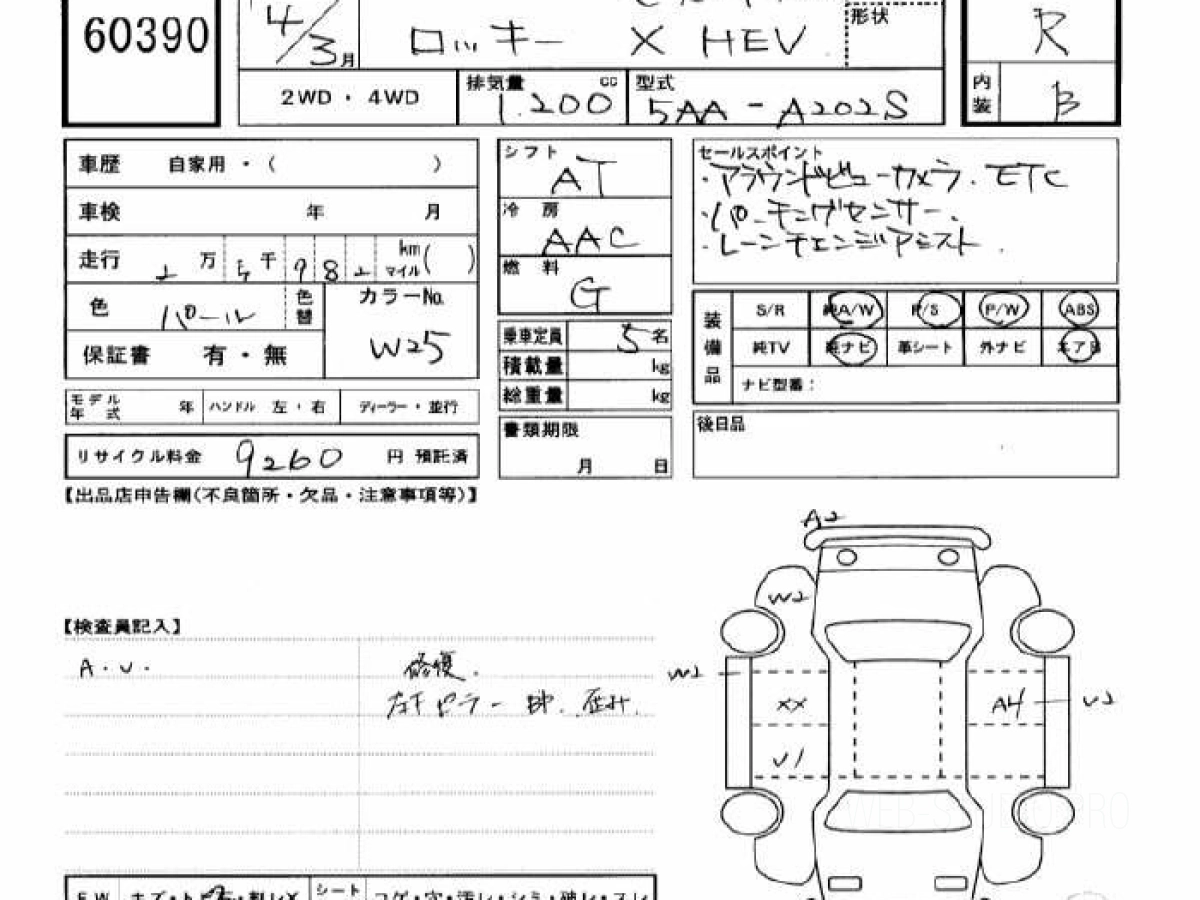 60390
4/3月
形状
R
ロッキー X HEV
2WD・4WD
排気量 cc
1.200
型式
5AA-A202S
内装 B
車歴 自家用・( )
車検 年 月
走行 2万5千982 km マイル( )
色 パール 色替
カラーNo. W25
保証書 有・無
モデル年式 年 ハンドル 左・右 ディーラー・並行
リサイクル料金 9260 円 預託済
シフト AT
冷房 AAC
燃料 G
乗車定員 5名
積載量 kg
総重量 kg
書類期限
月 日
セールスポイント
・アラウンドビューカメラ. ETC
・パーキングセンサー.
・レーンチェンジアシスト.
装備品
S/R 純A/W P/S P/W ABS
純TV 純ナビ 革シート 外ナビ エアB
ナビ型番:
後日品
【出品店申告欄(不良箇所・欠品・注意事項等)】
【検査員記入】
A.U.
修復.
左Fピラー 歪み.
A2
W2
W2
XX
A4
U2
U1
WEB-STUDIO PRO
シート
コゲ・穴・汚レ・シミ・破レ・スレ